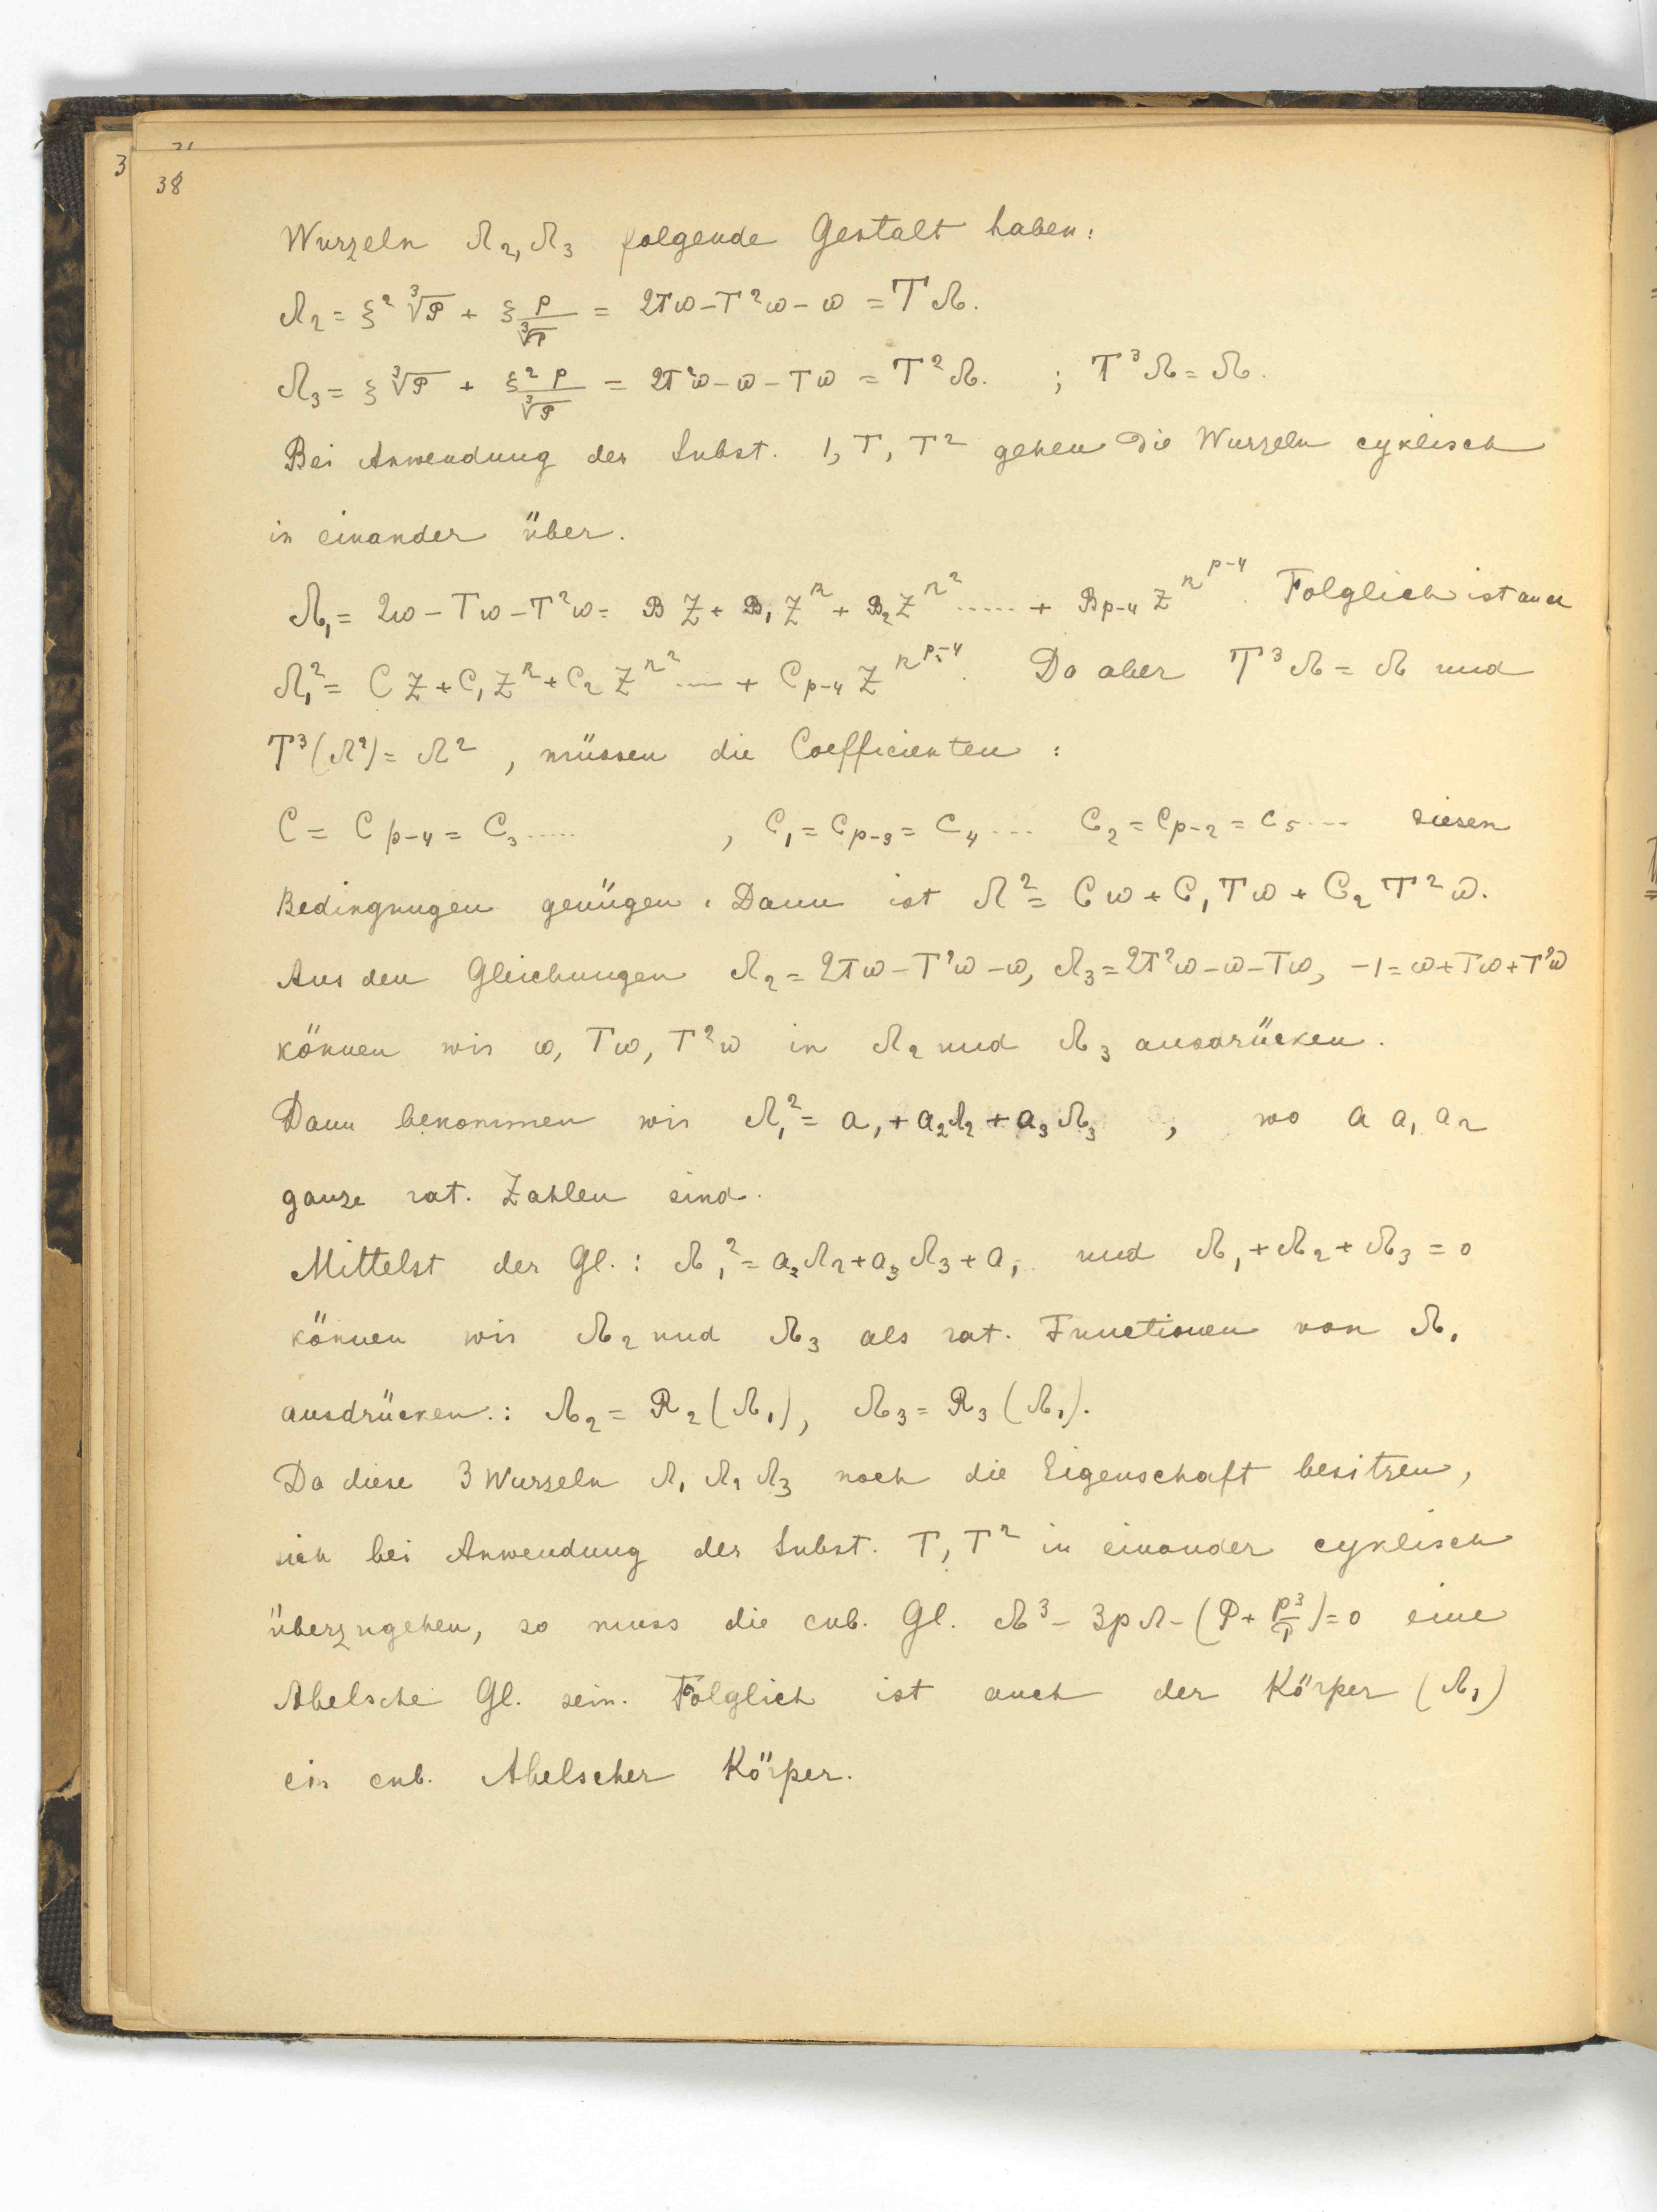 3
38
Wurzeln Λ₂, Λ₃ folgende Gestalt haben:
Λ₂ = ξ² ∛P + ξ p/∛P = 2Tω − T²ω − ω = TΛ.
Λ₃ = ξ ∛P + ξ² p/∛P = 2T²ω − ω − Tω = T²Λ. ; T³Λ = Λ.
Bei Anwendung der Subst. 1, T, T² gehen die Wurzeln cyklisch
in einander über.
Λ₁ = 2ω − Tω − T²ω = B Z + B₁ Z^r + B₂ Z^{r²} ..... + B_{p-4} Z^{r^{p-4}}. Folglich ist auch
Λ₁² = C Z + C₁ Z^r + C₂ Z^{r²} ..... + C_{p-4} Z^{r^{p-4}}. Da aber T³Λ = Λ und
T³(Λ²) = Λ², müssen die Coefficienten:
C = C_{p-4} = C₃ ..... , C₁ = C_{p-3} = C₄ ... C₂ = C_{p-2} = C₅ ... diesen
Bedingungen genügen. Dann ist Λ² = Cω + C₁Tω + C₂T²ω.
Aus den Gleichungen Λ₂ = 2Tω − T²ω − ω, Λ₃ = 2T²ω − ω − Tω, −1 = ω + Tω + T²ω
können wir ω, Tω, T²ω in Λ₂ und Λ₃ ausdrücken.
Dann bekommen wir Λ₁² = a₁ + a₂Λ₂ + a₃Λ₃ , wo a a₁ a₂
ganze rat. Zahlen sind.
Mittelst der Gl.: Λ₁² = a₂Λ₂ + a₃Λ₃ + a₁, und Λ₁ + Λ₂ + Λ₃ = 0
können wir Λ₂ und Λ₃ als rat. Functionen von Λ₁
ausdrücken.: Λ₂ = R₂(Λ₁), Λ₃ = R₃(Λ₁).
Da diese 3 Wurzeln Λ₁ Λ₂ Λ₃ noch die Eigenschaft besitzen,
sich bei Anwendung der Subst. T, T² in einander cyklisch
überzugehen, so muss die cub. Gl. Λ³ − 3pΛ − (P + p³/P) = 0 eine
Abelsche Gl. sein. Folglich ist auch der Körper (Λ₁)
ein cub. Abelscher Körper.